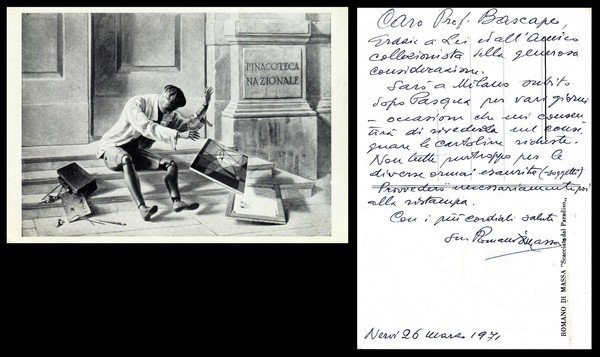 PINACOTECA
NAZIONALE
Caro Prof. Bascapè,
grazie a Lei e all'Amico
collezionista della generosa
considerazione.
Sarò a Milano subito
dopo Pasqua per vari giorni
- occasione che mi consen-
tirà di rivederla nel conse-
gnare le cartoline richieste.
Non tutte purtroppo per le
diverse ormai esaurite (soggetti)
Provvederò necessariamente poi
alla ristampa.
Con i più cordiali saluti
Suo Romano di Massa
Nervi 26 marzo 1971
ROMANO DI MASSA "Scacciato dal Paradiso"